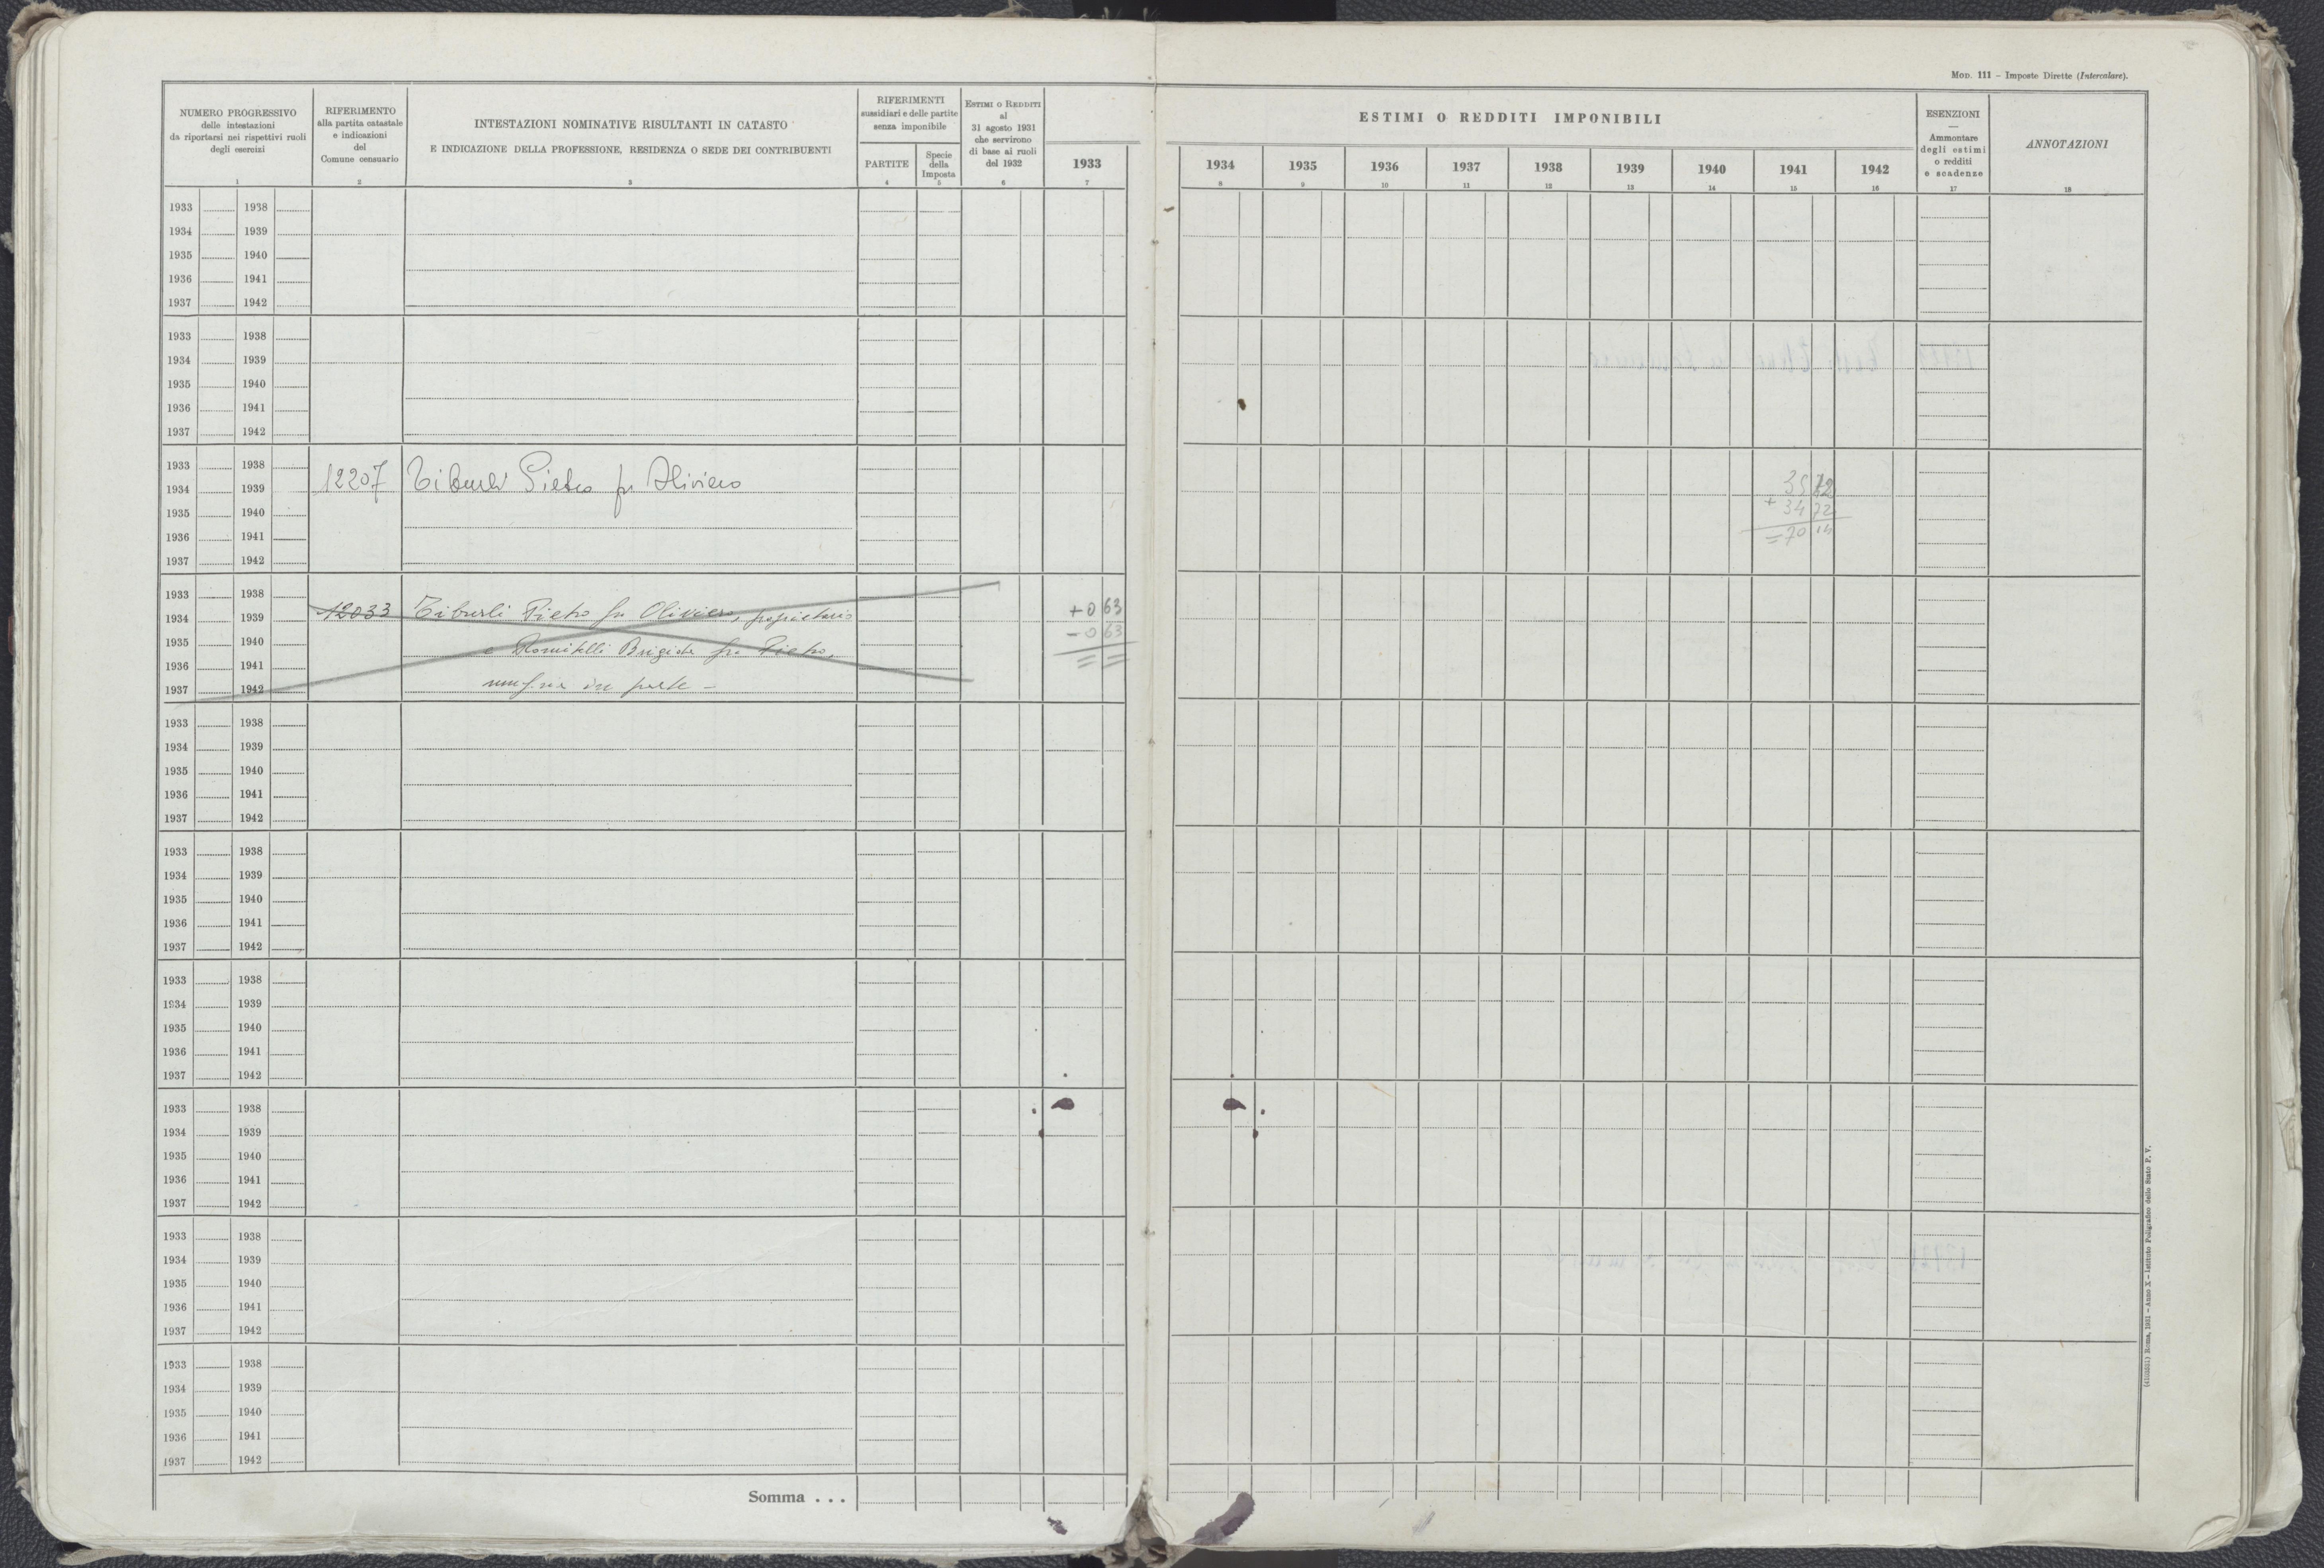 Mod. 111 – Imposte Dirette (Intercalare).
NUMERO PROGRESSIVO
delle intestazioni
da riportarsi nei rispettivi ruoli
degli esercizi
1
RIFERIMENTO
alla partita catastale
e indicazioni
del
Comune censuario
2
INTESTAZIONI NOMINATIVE RISULTANTI IN CATASTO
E INDICAZIONE DELLA PROFESSIONE, RESIDENZA O SEDE DEI CONTRIBUENTI
3
RIFERIMENTI
sussidiari e delle partite
senza imponibile
PARTITE
4
Specie
della
Imposta
5
Estimi o Redditi
al
31 agosto 1931
che servirono
di base ai ruoli
del 1932
6
1933
7
ESTIMI O REDDITI IMPONIBILI
1934 1935 1936 1937 1938 1939 1940 1941 1942
8 9 10 11 12 13 14 15 16
ESENZIONI
—
Ammontare
degli estimi
o redditi
e scadenze
17
ANNOTAZIONI
18
1933 1938
1934 1939
1935 1940
1936 1941
1937 1942
1933 1938
1934 1939
1935 1940
1936 1941
1937 1942
1933 1938
1934 1939 12207 Tiburli Pietro fu Oliviero
1935 1940
1936 1941
1937 1942
+ 34 72
= 70 14
1933 1938
1934 1939 12033 Tiburli Pietro fu Oliviero, proprietario + 0 63
1935 1940 - 0 63
e Romitelli Brigida fu Pietro,
1936 1941
1937 1942 in parte -
1933 1938
1934 1939
1935 1940
1936 1941
1937 1942
1933 1938
1934 1939
1935 1940
1936 1941
1937 1942
1933 1938
1934 1939
1935 1940
1936 1941
1937 1942
1933 1938
1934 1939
1935 1940
1936 1941
1937 1942
1933 1938
1934 1939
1935 1940
1936 1941
1937 1942
1933 1938
1934 1939
1935 1940
1936 1941
1937 1942
Somma . . .
Roma, 1931 – Anno X – Istituto Poligrafico dello Stato P. V.